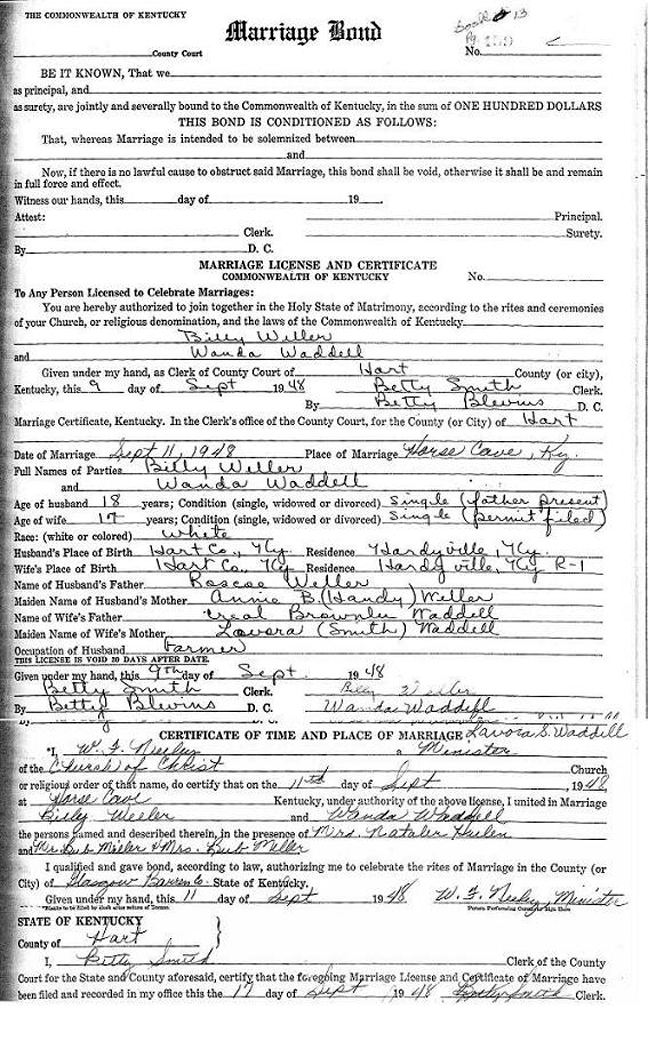 THE COMMONWEALTH OF KENTUCKY
Marriage Bond
Book 13
Pg 159
County Court
No.
BE IT KNOWN, That we
as principal, and
as surety, are jointly and severally bound to the Commonwealth of Kentucky, in the sum of ONE HUNDRED DOLLARS
THIS BOND IS CONDITIONED AS FOLLOWS:
That, whereas Marriage is intended to be solemnized between
and
Now, if there is no lawful cause to obstruct said Marriage, this bond shall be void, otherwise it shall be and remain
in full force and effect.
Witness our hands, this day of 19 .
Attest: Principal.
Clerk. Surety.
By D. C.
MARRIAGE LICENSE AND CERTIFICATE
COMMONWEALTH OF KENTUCKY No.
To Any Person Licensed to Celebrate Marriages:
You are hereby authorized to join together in the Holy State of Matrimony, according to the rites and ceremonies
of your Church, or religious denomination, and the laws of the Commonwealth of Kentucky
Billy Weller
and Wanda Waddell
Given under my hand, as Clerk of County Court of Hart County (or city),
Kentucky, this 9 day of Sept 1948 Betty Smith Clerk.
By Betty Blevins D. C.
Marriage Certificate, Kentucky. In the Clerk's office of the County Court, for the County (or City) of Hart
Date of Marriage Sept 11, 1948 Place of Marriage Horse Cave, Ky.
Full Names of Parties Billy Weller
and Wanda Waddell
Age of husband 18 years; Condition (single, widowed or divorced) Single (father present)
Age of wife 17 years; Condition (single, widowed or divorced) Single (permit filed)
Race: (white or colored) White
Husband's Place of Birth Hart Co., Ky. Residence Hardyville, Ky.
Wife's Place of Birth Hart Co., Ky Residence Hardyville, Ky R-1
Name of Husband's Father Roscoe Weller
Maiden Name of Husband's Mother Annie B. (Handy) Weller
Name of Wife's Father Creal Brownlee Waddell
Maiden Name of Wife's Mother Lavora (Smith) Waddell
Occupation of Husband Farmer
THIS LICENSE IS VOID 30 DAYS AFTER DATE.
Given under my hand, this 9th day of Sept. 1948
Betty Smith Clerk. Billy Weller
By Betty Blevins D. C. Wanda Waddell
CERTIFICATE OF TIME AND PLACE OF MARRIAGE Lavora S. Waddill
"I, W. F. Neeley a Minister
of the Church of Christ Church
or religious order of that name, do certify that on the 11th day of Sept, 1948
at Horse Cave Kentucky, under authority of the above license, I united in Marriage
Billy Weeler and Wanda Waddell
the persons named and described therein, in the presence of Mrs. Hulen
and Mr. Bub Miller & Mrs. Bub Miller
I qualified and gave bond, according to law, authorizing me to celebrate the rites of Marriage in the County (or
City) of Glasgow Barren Co. State of Kentucky.
Given under my hand, this 11 day of Sept 1948 W. F. Neeley, Minister
Person Performing Ceremony Sign Here
STATE OF KENTUCKY
County of Hart
I, Betty Smith Clerk of the County
Court for the State and County aforesaid, certify that the foregoing Marriage License and Certificate of Marriage have
been filed and recorded in my office this the 17 day of Sept 1948 Betty Smith Clerk.